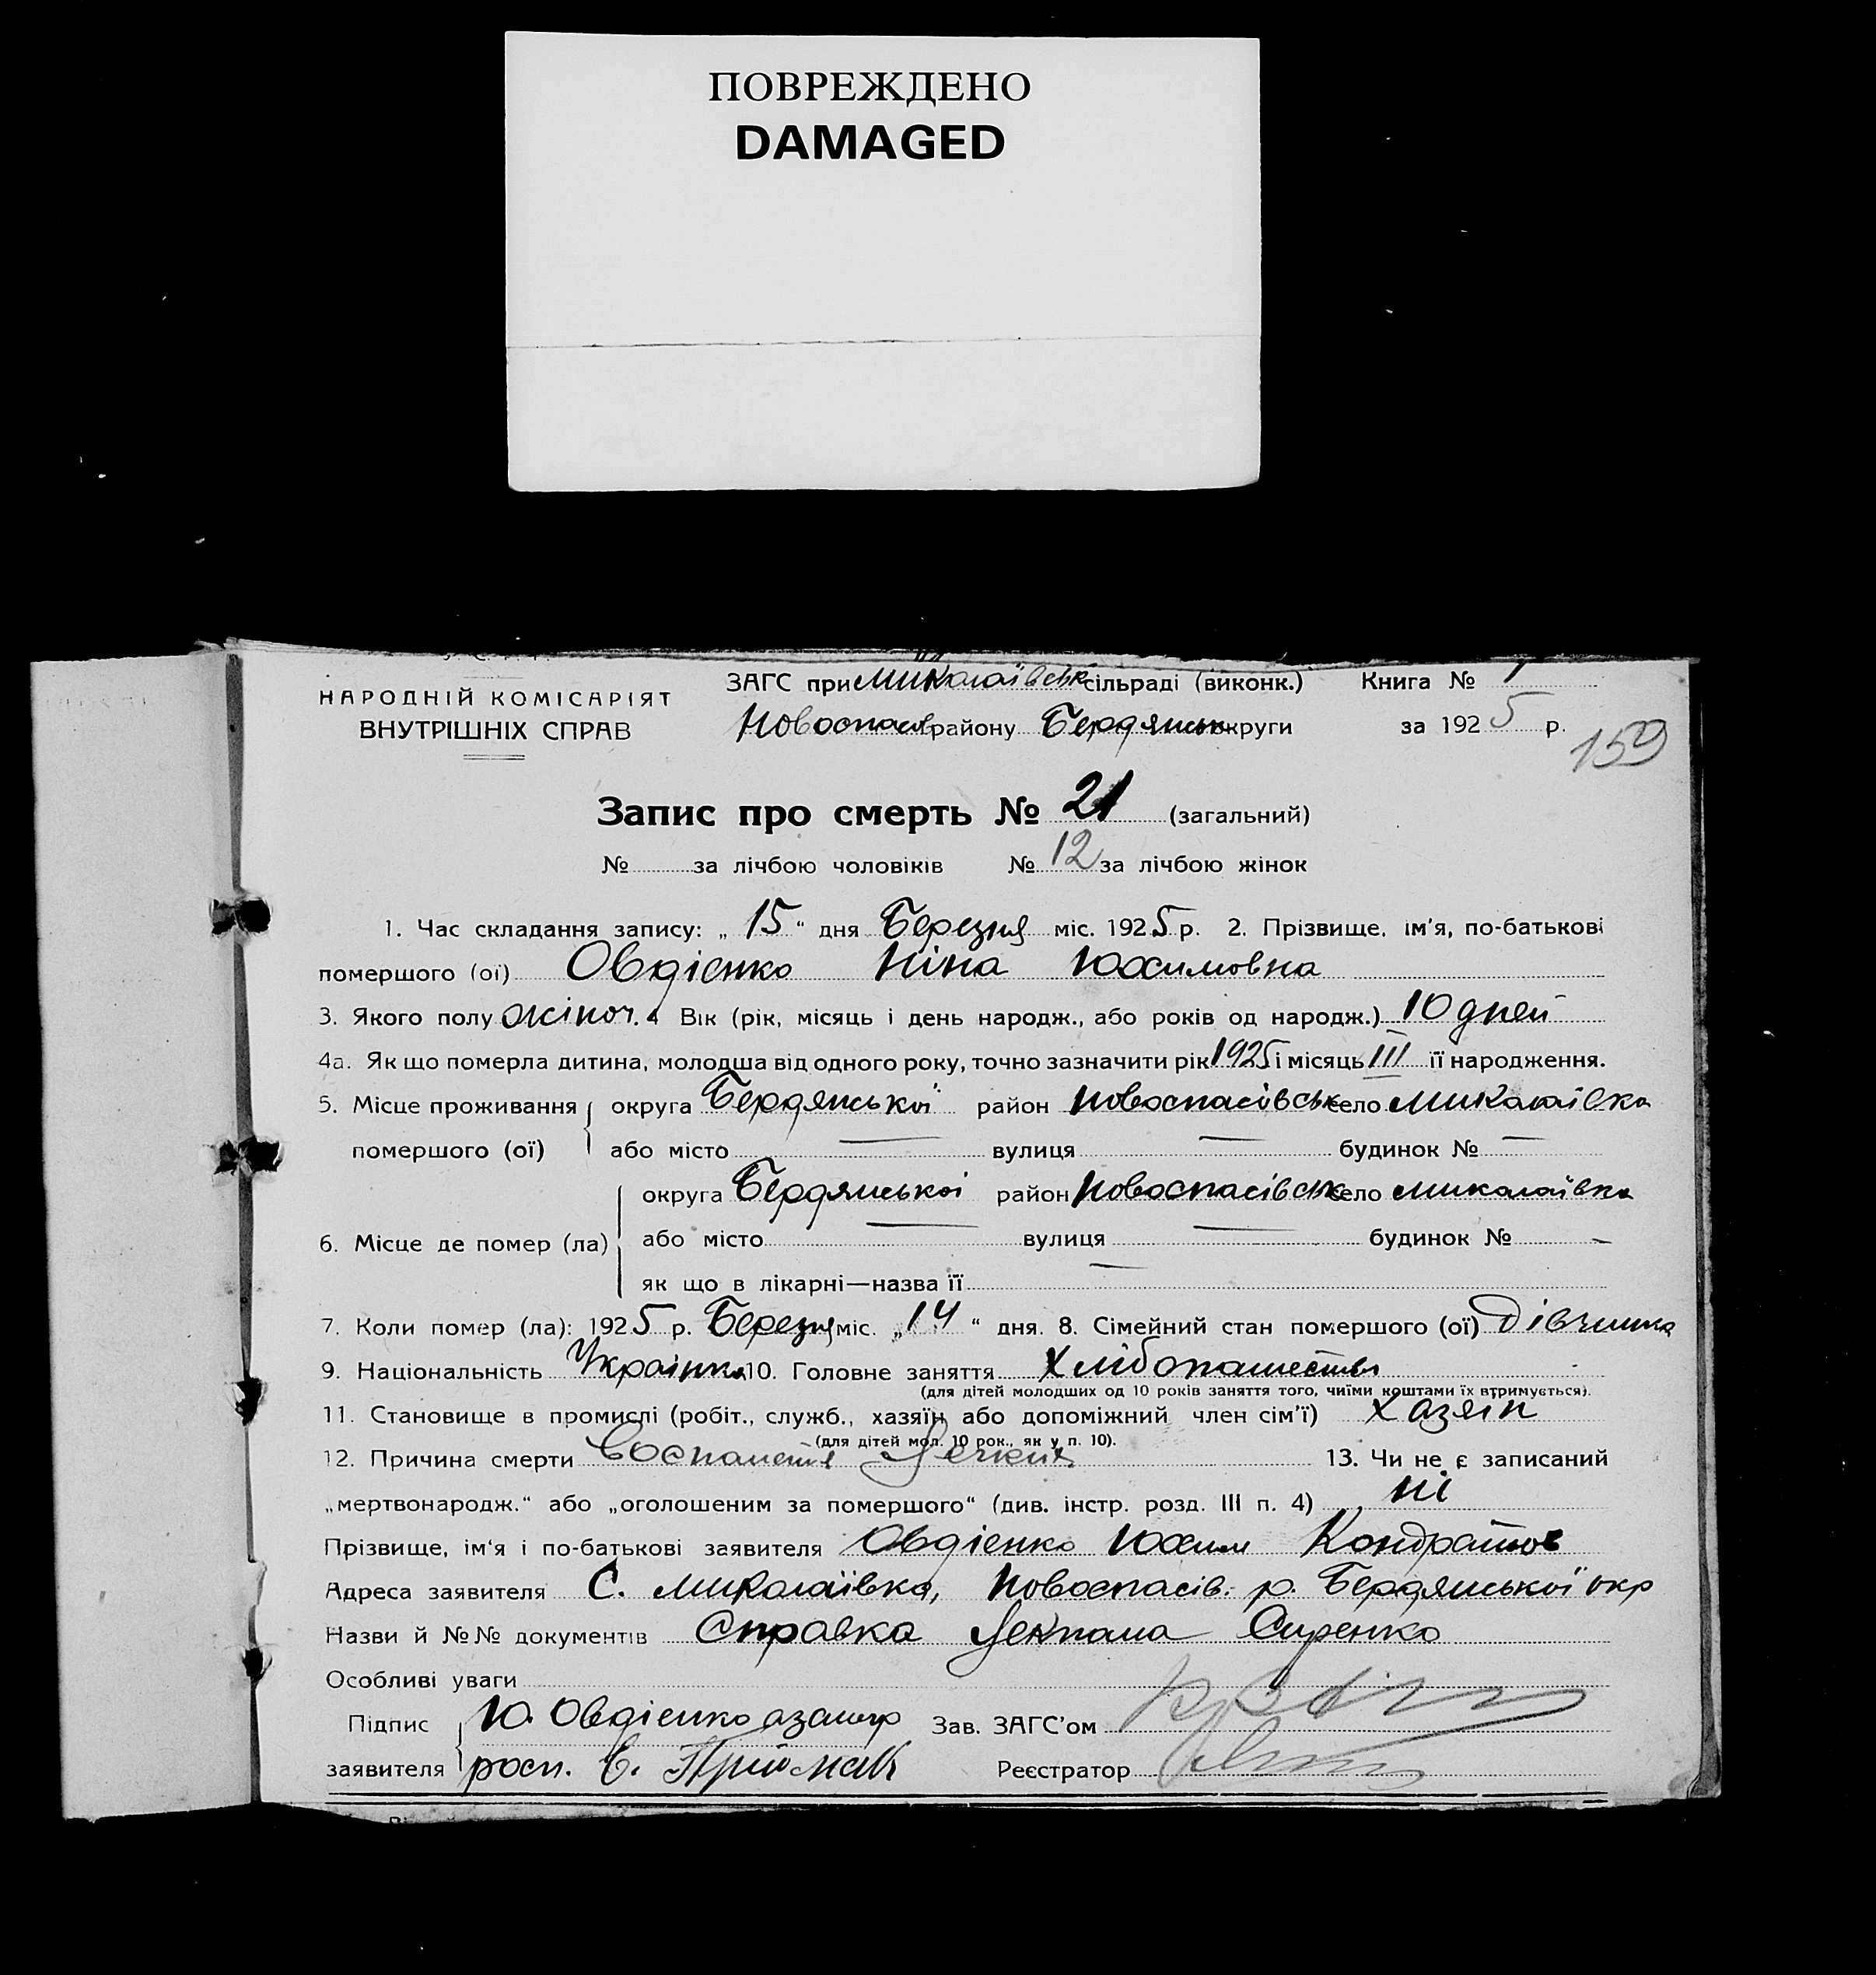 ПОВРЕЖДЕНО
DAMAGED
НАРОДНІЙ КОМІСАРІЯТ
ВНУТРІШНІХ СПРАВ
ЗАГС при Миколаївськ сільраді (виконк.) Книга № 1
Новоспасів району Бердянськ округи за 1925 р.
159
Запис про смерть № 21 (загальний)
№ за лічбою чоловіків № 12 за лічбою жінок
1. Час складання запису: „ 15 “ дня Березня міс. 1925 р. 2. Прізвище, ім'я, по-батькові
помершого (ої) Овдієнко Ніна Юхимовна
3. Якого полу жіноч. 4 Вік (рік, місяць і день народж., або років од народж.) 10 дней
4а. Як що померла дитина, молодша від одного року, точно зазначити рік 1925 і місяць III її народження.
5. Місце проживання округа Бердянської район Новоспасівськ село Миколаївка
помершого (ої) або місто — вулиця — будинок № —
округа Бердянської район Новоспасівськ село Миколаївка
6. Місце де помер (ла) або місто — вулиця — будинок № —
як що в лікарні—назва її —
7. Коли помер (ла): 1925 р. Березня міс. „ 14 “ дня. 8. Сімейний стан помершого (ої) Дівчина
9. Національність Українка 10. Головне заняття Хлібопашество
(для дітей молодших од 10 років заняття того, чиїми коштами їх втримується).
11. Становище в промислі (робіт., служб., хазяїн або допоміжний член сім'ї) Хазяїн
(для дітей мол. 10 рок., як у п. 10).
12. Причина смерти Воспаленія Легких 13. Чи не є записаний
„мертвонародж.“ або „оголошеним за помершого“ (див. інстр. розд. III п. 4) ні
Прізвище, ім'я і по-батькові заявителя Овдієнко Юхим Кондратов
Адреса заявителя С. Миколаївка, Новоспасів. р. Бердянської окр
Назви й №№ документів Справка Лекпома Сиренко
Особливі уваги
Підпис Ю. Овдієнко а за него Зав. ЗАГС'ом
заявителя росп. Є. Приймак Реєстратор